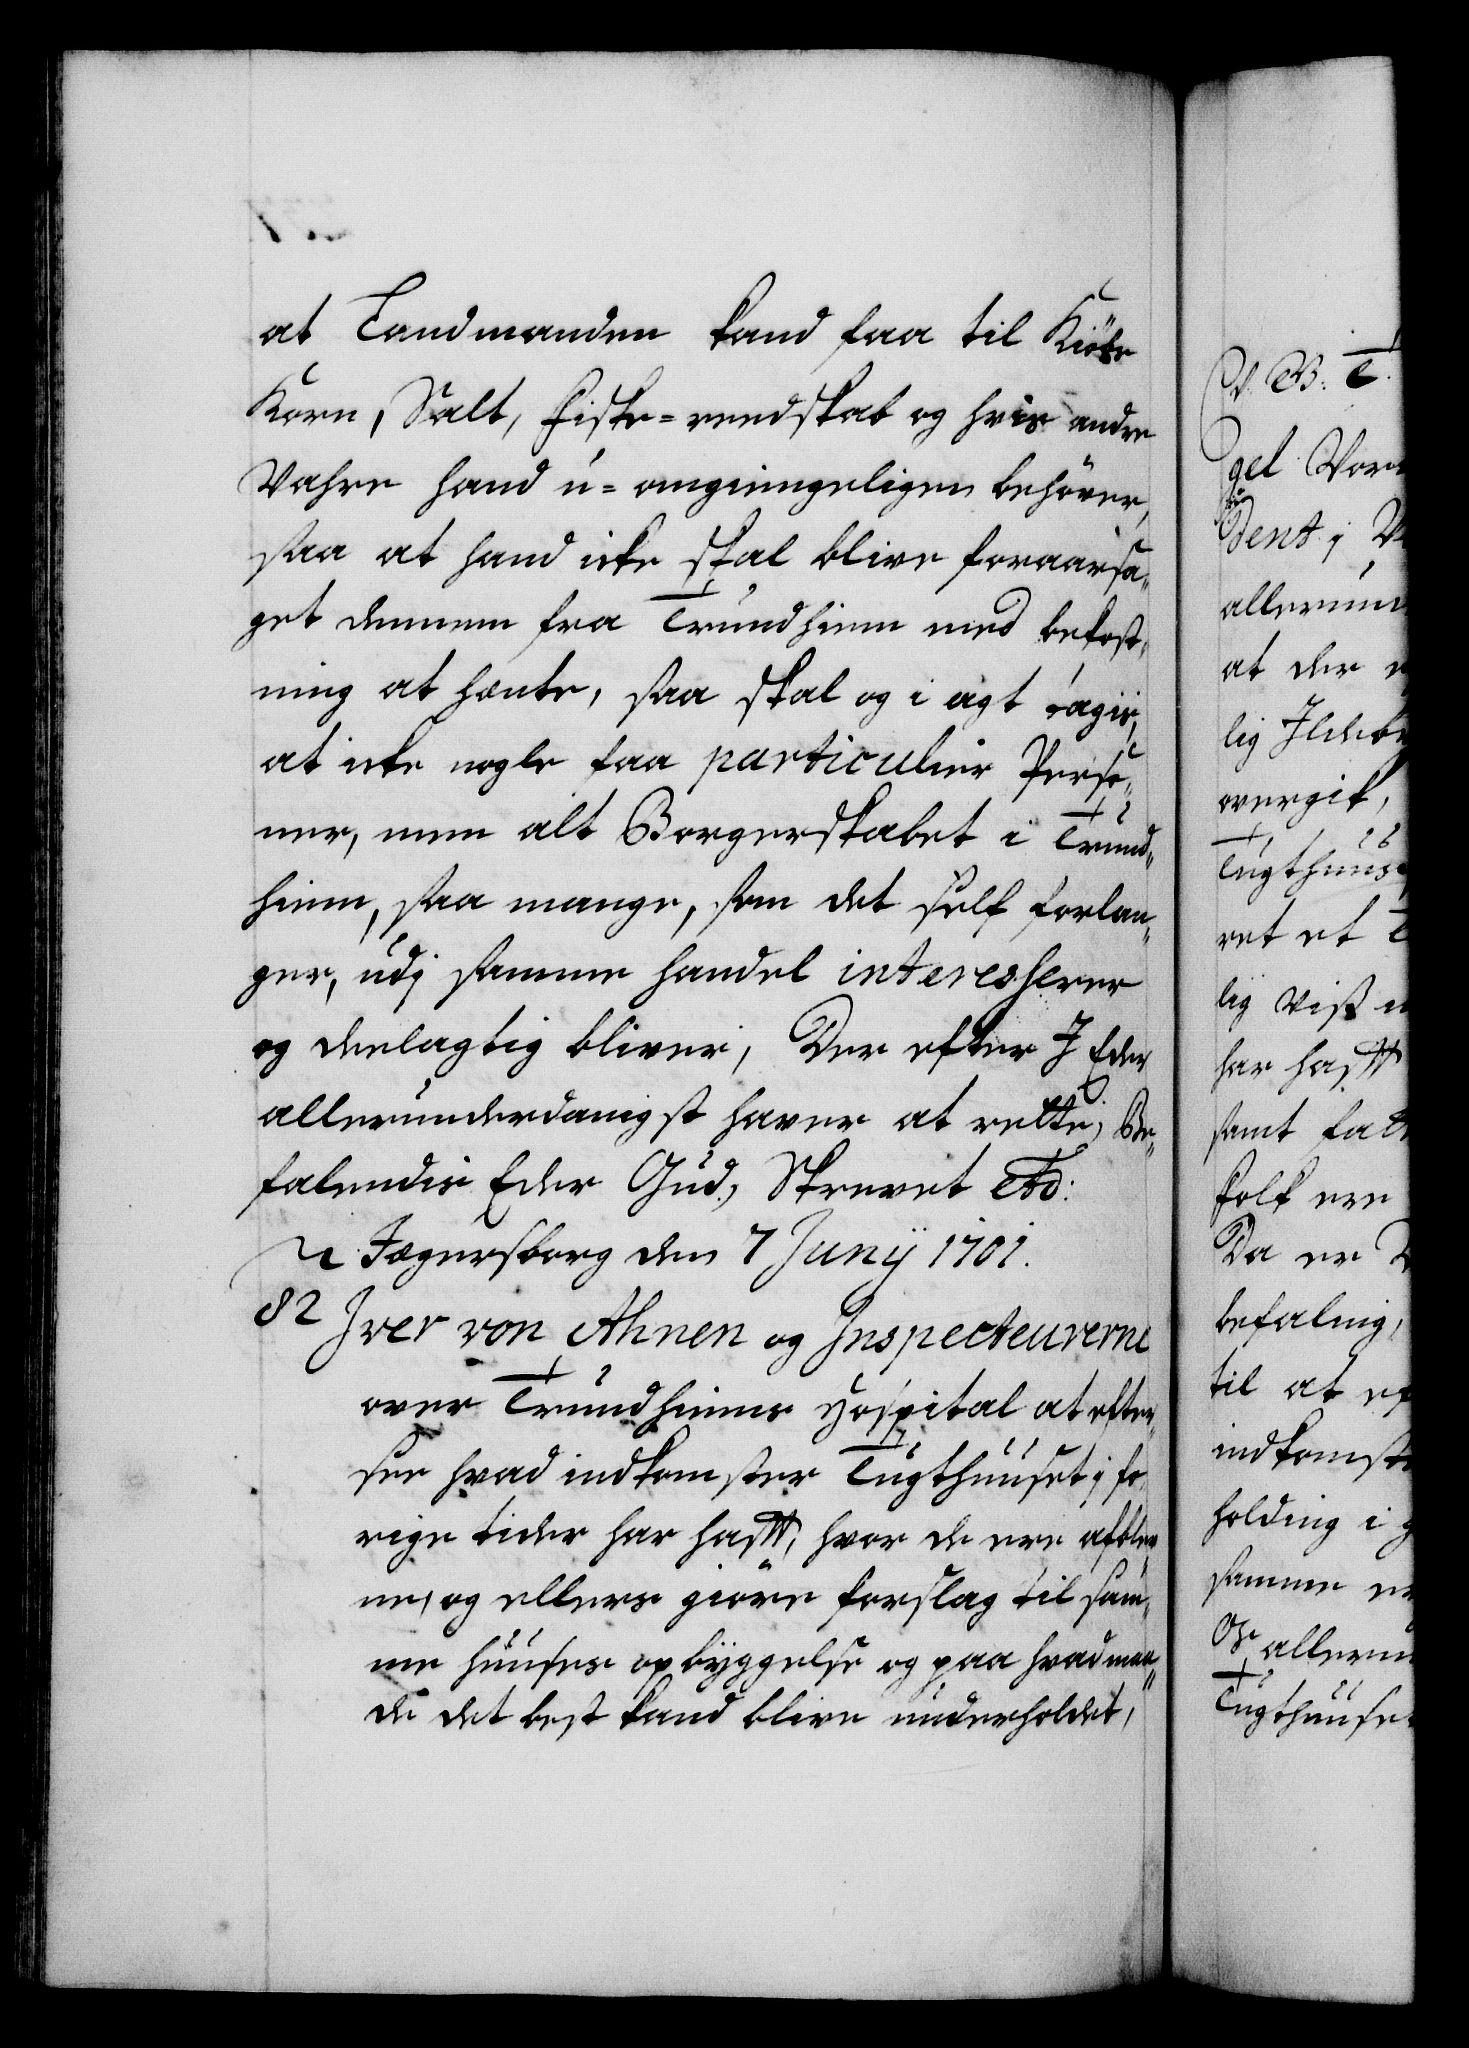 at Landmanden kand faa til Kiöbs
Korn, Salt, Fiske-reedskab og hvis andre
Vahre hand u-omgiengeligen behöver,
saa at hand icke skal blive foraarsa„
get dennem fra Trundhiem med bekost„
ning at hente, saa skal og i agt tagis,
at icke nogle faa particulier Perso„
ner, men alt Borgerskabet i Trund„
hiem, saa mange, som det self forlan„
ger, udj samme handel interesserer
og deelagtig bliver, Der efter J Eder
allerunderdanigst haver at rette; Be„
falendis Eder Gud, Skrevet etc:
Jægersborg den 7 Junij 1701.
82 Jver von Ahnen og Inspecteurerne
over Trundhiems Hospital at efter„
see hvad indkomster Tugthuuset i fo„
rige tider har hafft, hvor de ere afblev„
ne, og ellers giöre forslag til sam„
me huuses opbyggelse og paa hvad maa„
de det best kand blive underholdet,
C. V. T.
gel Vor
dent i V
allerun
at der
lig Ildeb
overgik,
Tugthuus
ret et
lig Viss
har hafft
samt fat
folk ere
Da er
befaling,
til at ef
indkomst
holding i g
samme
Os allerun
Tugthuuse